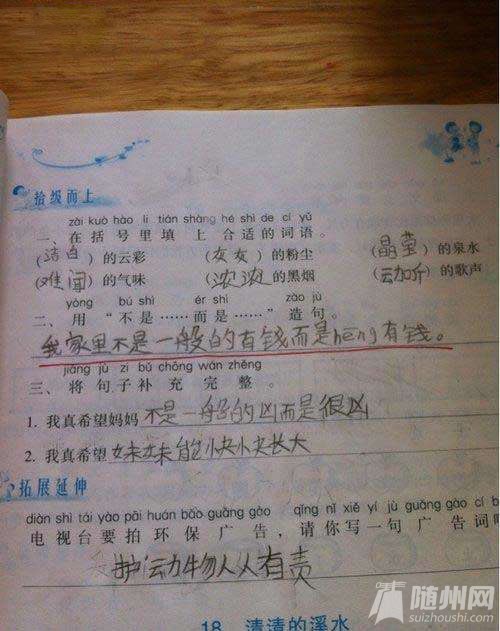 拾级而上
zài kuò hào li tián shàng hé shì de cí yǔ
一、在括号里填上合适的词语。
(洁白)的云彩 (灰灰)的粉尘 (晶莹)的泉水
(难闻)的气味 (浓浓)的黑烟 (动听)的歌声
yòng bú shì ér shì zào jù
二、用“不是……而是……”造句。
我家里不是一般的有钱而是hěng有钱。
jiāng jù zi bǔ chōng wán zhěng
三、将句子补充完整。
1. 我真希望妈妈不是一般的凶而是很凶
2. 我真希望妹妹能快快长大
拓展延伸
diàn shì tái yào pāi huán bǎo guǎng gào qǐng nǐ xiě yí jù guǎng gào cí b
电视台要拍环保广告,请你写一句广告词吧
护动物人人有责
18 清清的溪水
随州网
suizhoushi.com